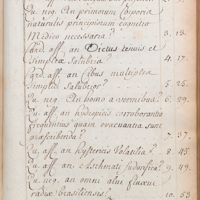 Qu. neg. An primorum Corporis
naturalis principiorum cognitio
Medico necessaria? 3. 13.
Card. aff. an Dictus tenuis et
simplex Salubria 4. 17.
Card. aff. an Cibus multiplex
simplici Salubrior? 5. 25.
Qu. neg. An homo a vermibus 6. 29.
Qu. aff. an hydropicis corroborantia
frequentius quam evacuantia sunt
praescribenda? 7. 37.
Qu. aff. an hystericis Volatilia? 8. 45.
Qu. aff. an Asthmati Sudorifica? 9. 49.
Qu. neg. an omni alvi fluxui
radix brasiliensis? 10. 53